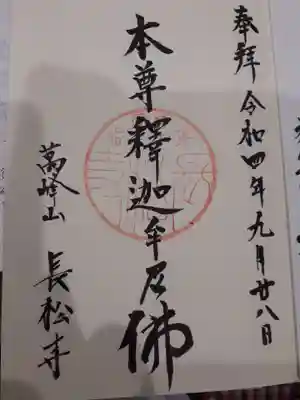 奉拜 令和四年九月廿八日
本尊釋迦牟尼佛
萬峰山 長松寺